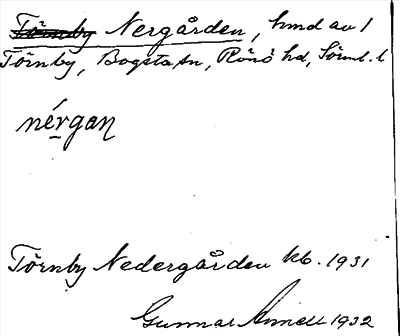 Törnby Nergården, hmd av 1
Törnby, Bogsta sn, Rönö hd, Söml. l
nérgan
Törnby Nedergården kb. 1931
Gunnar Linnell 1932